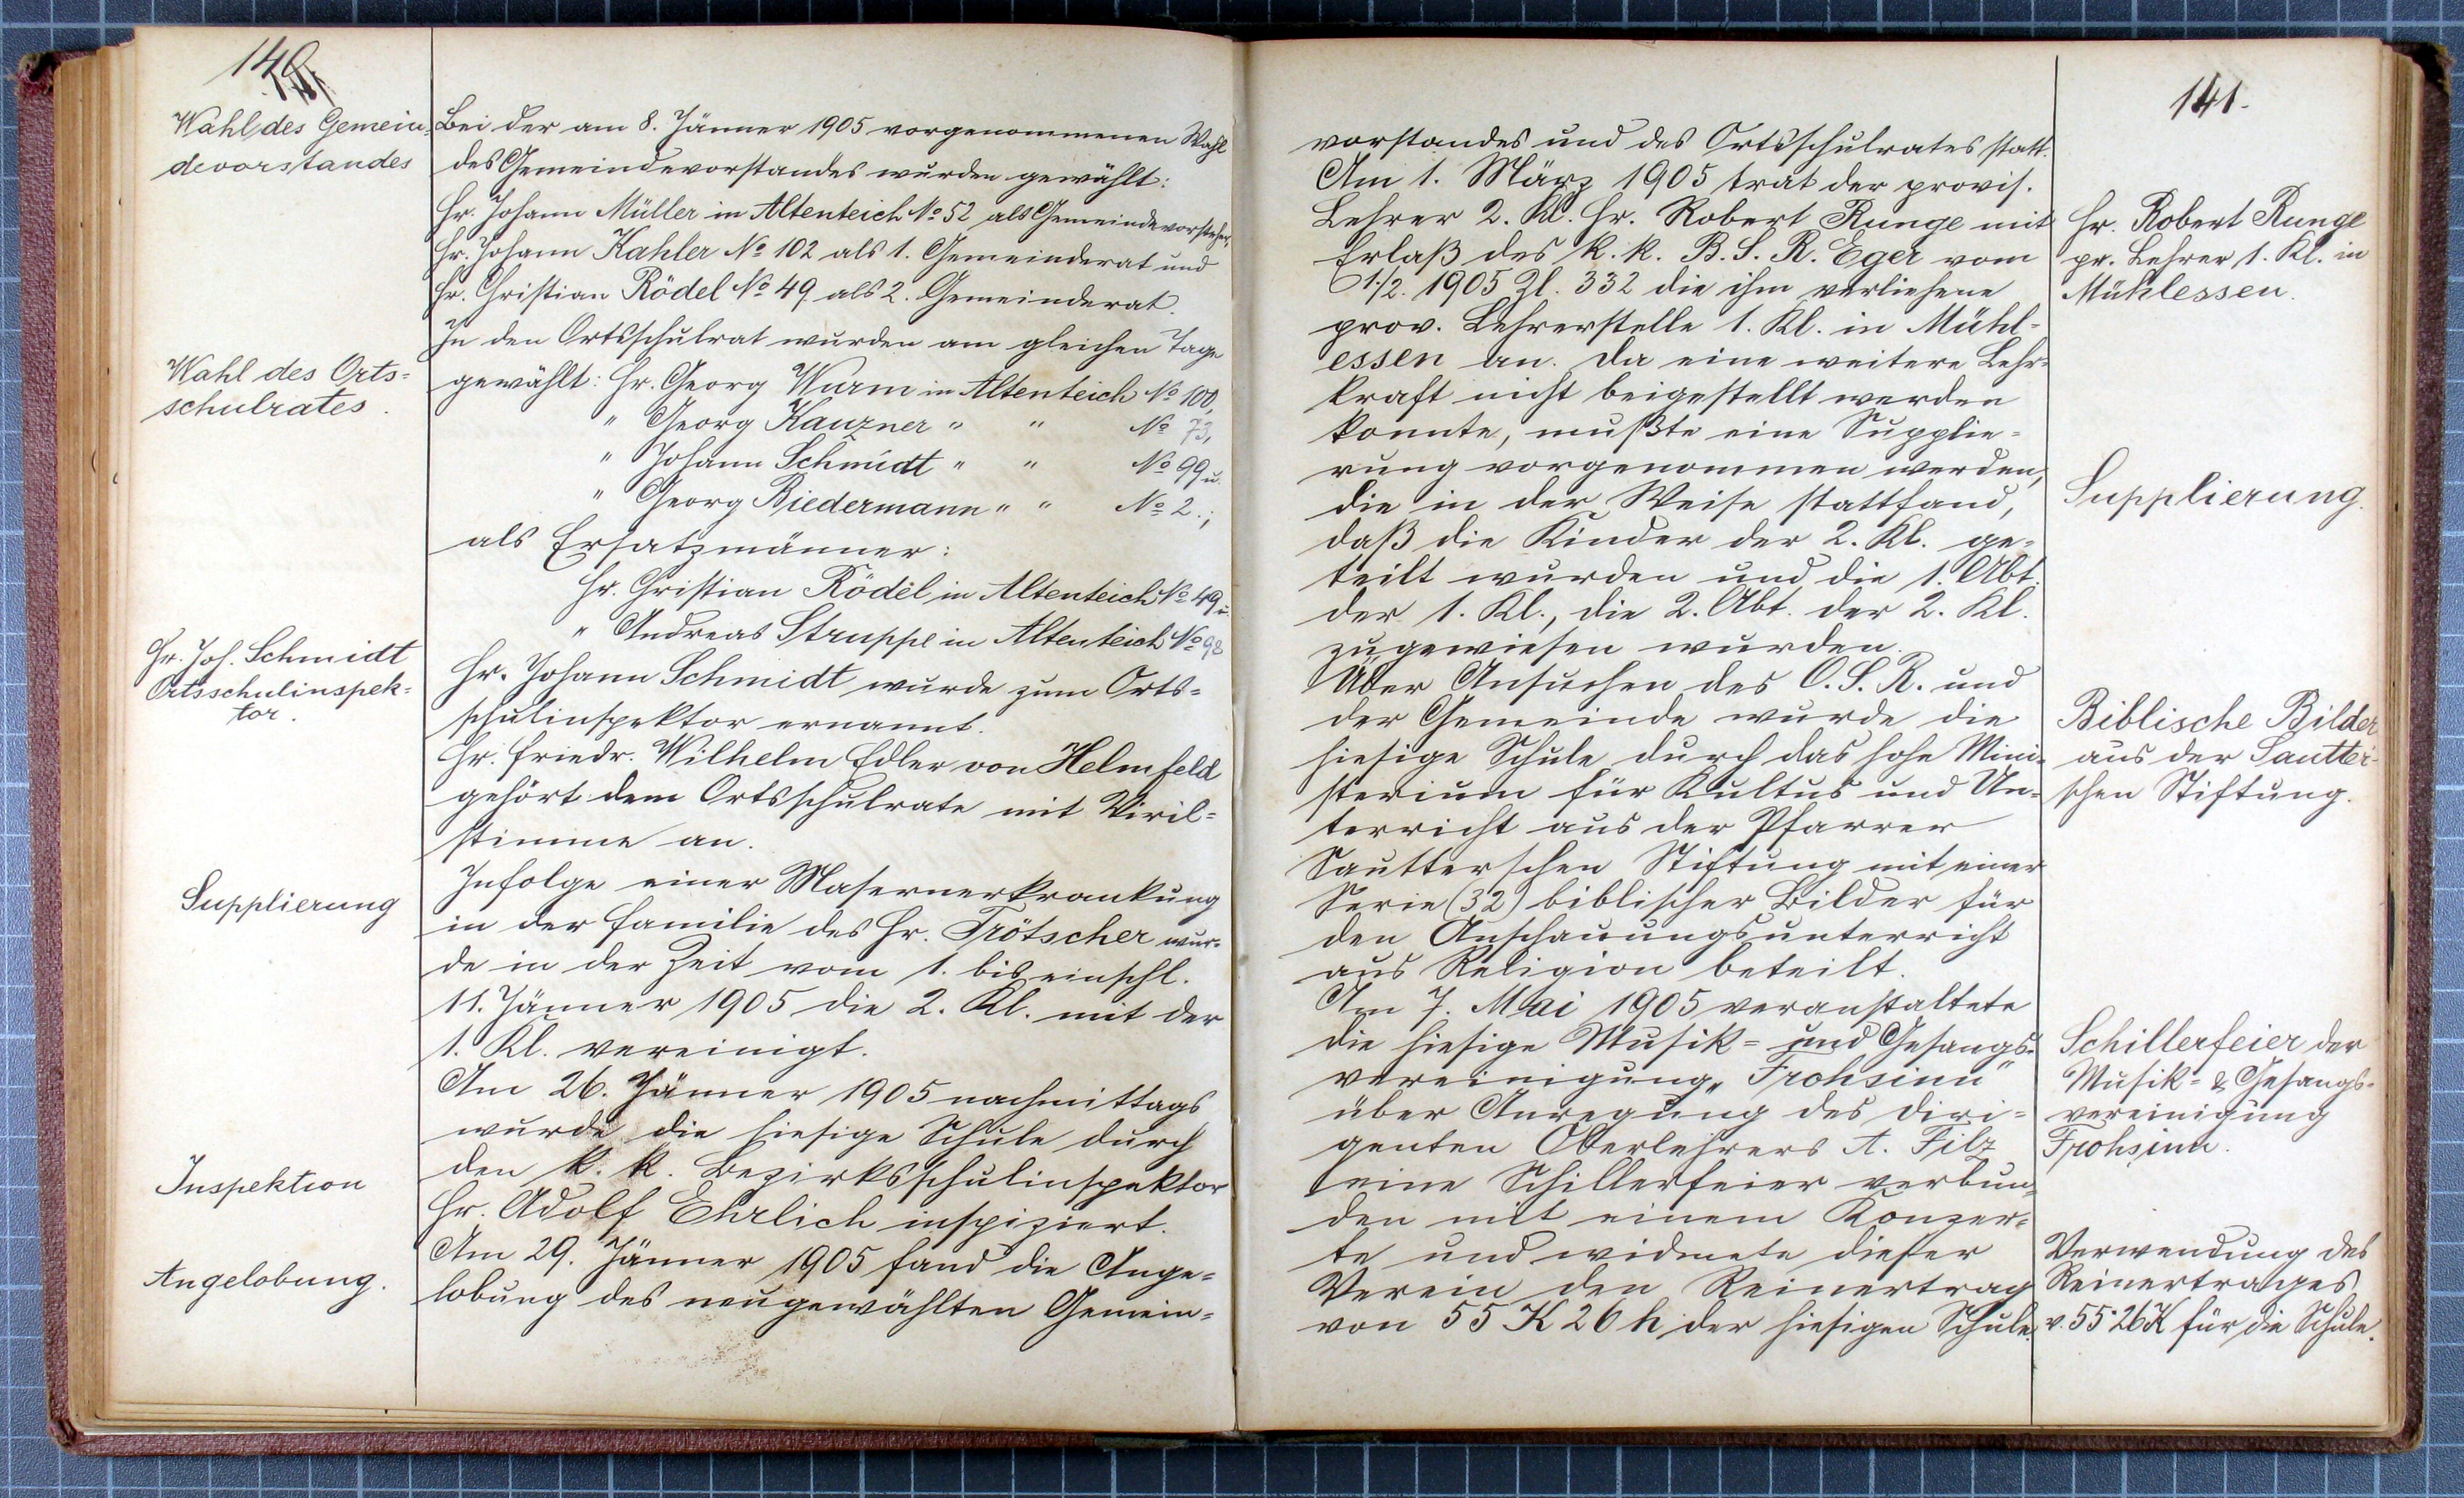 140
Wahl des Gemein-
devorstandes
Bei der am 8. Jänner 1905 vorgenommenen Wahl
des Gemeindevorstandes wurden gewählt:
Hr. Johann Müller in Altenteich No 52 als Gemeindevorsteher,
Hr. Johann Kahler No 102 als 1. Gemeinderat und
Hr. Christian Rödel No 49 als 2. Gemeinderat.
Wahl des Orts-
schulrates.
In den Ortsschulrat wurden am gleichen Tage
gewählt: Hr. Georg Wurm in Altenteich No 100,
" Georg Kauzner " " No 73,
" Johann Schmidt " " No 99 u.
" Georg Biedermann " " No 2.;
als Ersatzmänner:
Hr. Christian Rödel in Altenteich No 49 u.
" Andreas Struppe in Altenteich No 98
Hr. Joh. Schmidt
Ortsschulinspek-
tor.
Hr. Johann Schmidt wurde zum Orts-
schulinspektor ernannt.
Hr. Friedr. Wilhelm Edler von Helmfeld
gehört dem Ortsschulrate mit Viril-
stimme an.
Supplierung
Infolge einer Masernerkrankung
in der Familie des Hr. Trötscher wur-
de in der Zeit vom 1. bis einschl.
11. Jänner 1905 die 2. Kl. mit der
1. Kl. vereinigt.
Inspektion
Am 26. Jänner 1905 nachmittags
wurde die hiesige Schule durch
den k. k. Bezirksschulinspektor
Hr. Adolf Ehrlich inspiziert.
Angelobung.
Am 29. Jänner 1905 fand die Ange-
lobung des neugewählten Gemein-
141.
vorstandes und des Ortsschulrates statt.
Am 1. März 1905 trat der provis.
Lehrer 2. Kl. Hr. Robert Runge mit
Erlaß des k. k. B. S. R. Eger vom
1./2. 1905 Zl. 332 die ihm verliehene
prov. Lehrerstelle 1. Kl. in Mühl-
essen an. Da eine weitere Lehr-
kraft nicht beigestellt werden
konnte, mußte eine Supplie-
rung vorgenommen werden,
die in der Weise stattfand,
daß die Kinder der 2. Kl. ge-
teilt wurden und die 1. Abt.
der 1. Kl., die 2. Abt. der 2. Kl.
zugewiesen wurden.
Hr. Robert Runge
pr. Lehrer 1. Kl. in
Mühlessen.
Supplierung.
Über Ansuchen des O. S. R. und
der Gemeinde wurde die
hiesige Schule durch das hohe Mini-
sterium für Kultus und Un-
terricht aus der Pfarrer
Sautterschen Stiftung mit einer
Serie (32) biblischer Bilder für
den Anschauungsunterricht
aus Religion beteilt.
Biblische Bilder
aus der Sautter-
schen Stiftung.
Am 7. Mai 1905 veranstaltete
die hiesige Musik- und Gesangs-
vereinigung „Frohsinn"
über Anregung des Diri-
genten Oberlehrers A. Filz
eine Schillerfeier verbun-
den mit einem Konzer-
te und widmete dieser
Verein den Reinertrag
von 55 K 26 h der hiesigen Schule.
Schillerfeier der
Musik- & Gesangs-
vereinigung
Frohsinn.
Verwendung des
Reinertrages
v. 55·26 K für die Schule.